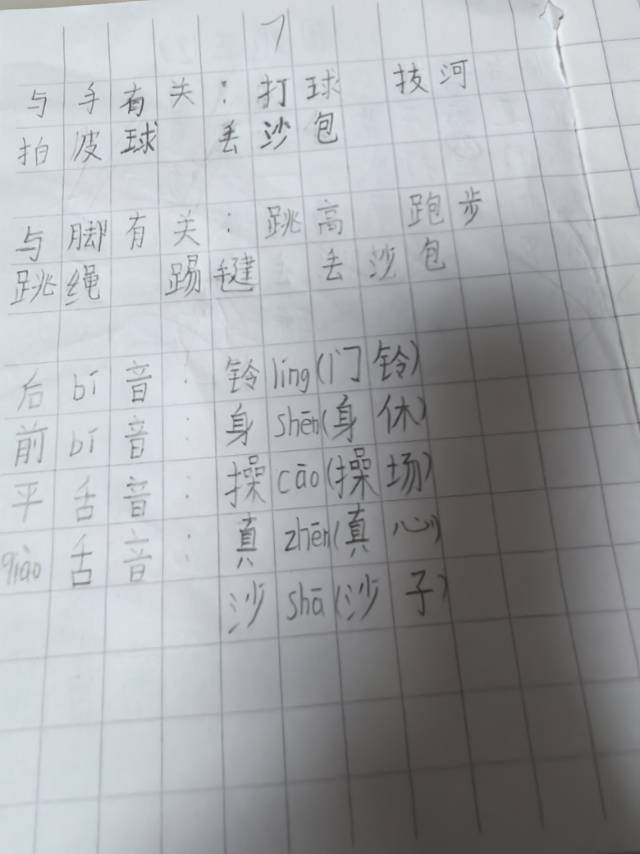 7
与手有关：打球 技河
拍皮球 丢沙包
与脚有关：跳高 跑步
跳绳 踢毽 丢沙包
后bí音：铃líng(门铃)
前bí音：身shēn(身休)
平舌音：操cāo(操场)
qiào舌音：真zhēn(真心)
沙shā(沙子)